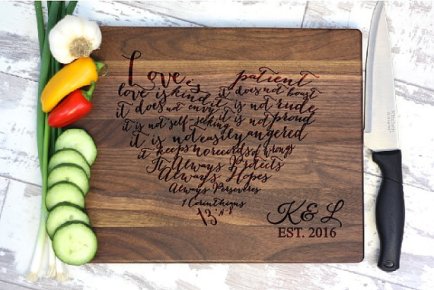 Love is patient
love is kind, it does not boast
it does not envy it is not rude
it is not self-seeking it is not proud
it is not easily angered
it keeps no records of wrongs
It Always Protects
Always Hopes
Always Perseveres
1 Corinthians
13
K & L
EST. 2016